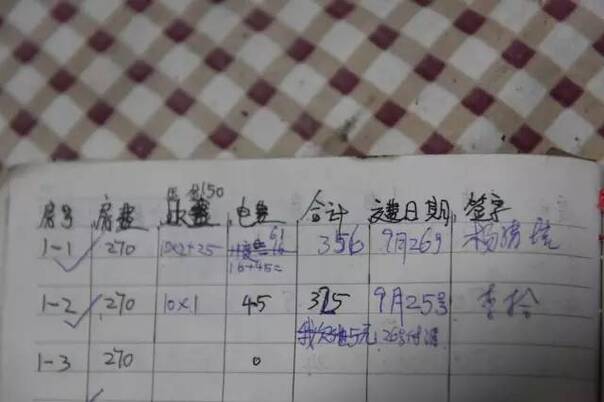 150
房号 房费 水费 电费 合计 交费日期 签字
1-1 270 10×2+25 61 356 9月26号
16+45=
1-2 270 10×1 45 325 9月25号 李
5元 26号付清
1-3 270 0